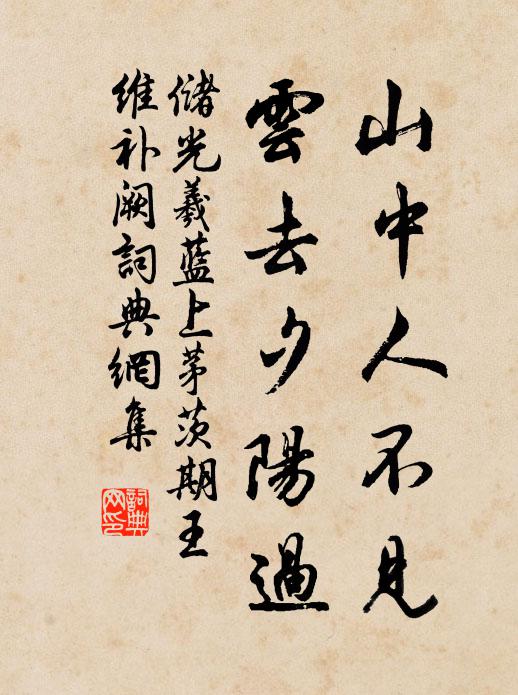 山中人不見
雲去夕陽過
儲光羲藍上茅茨期王
維补阙詞典網集
詞典網印